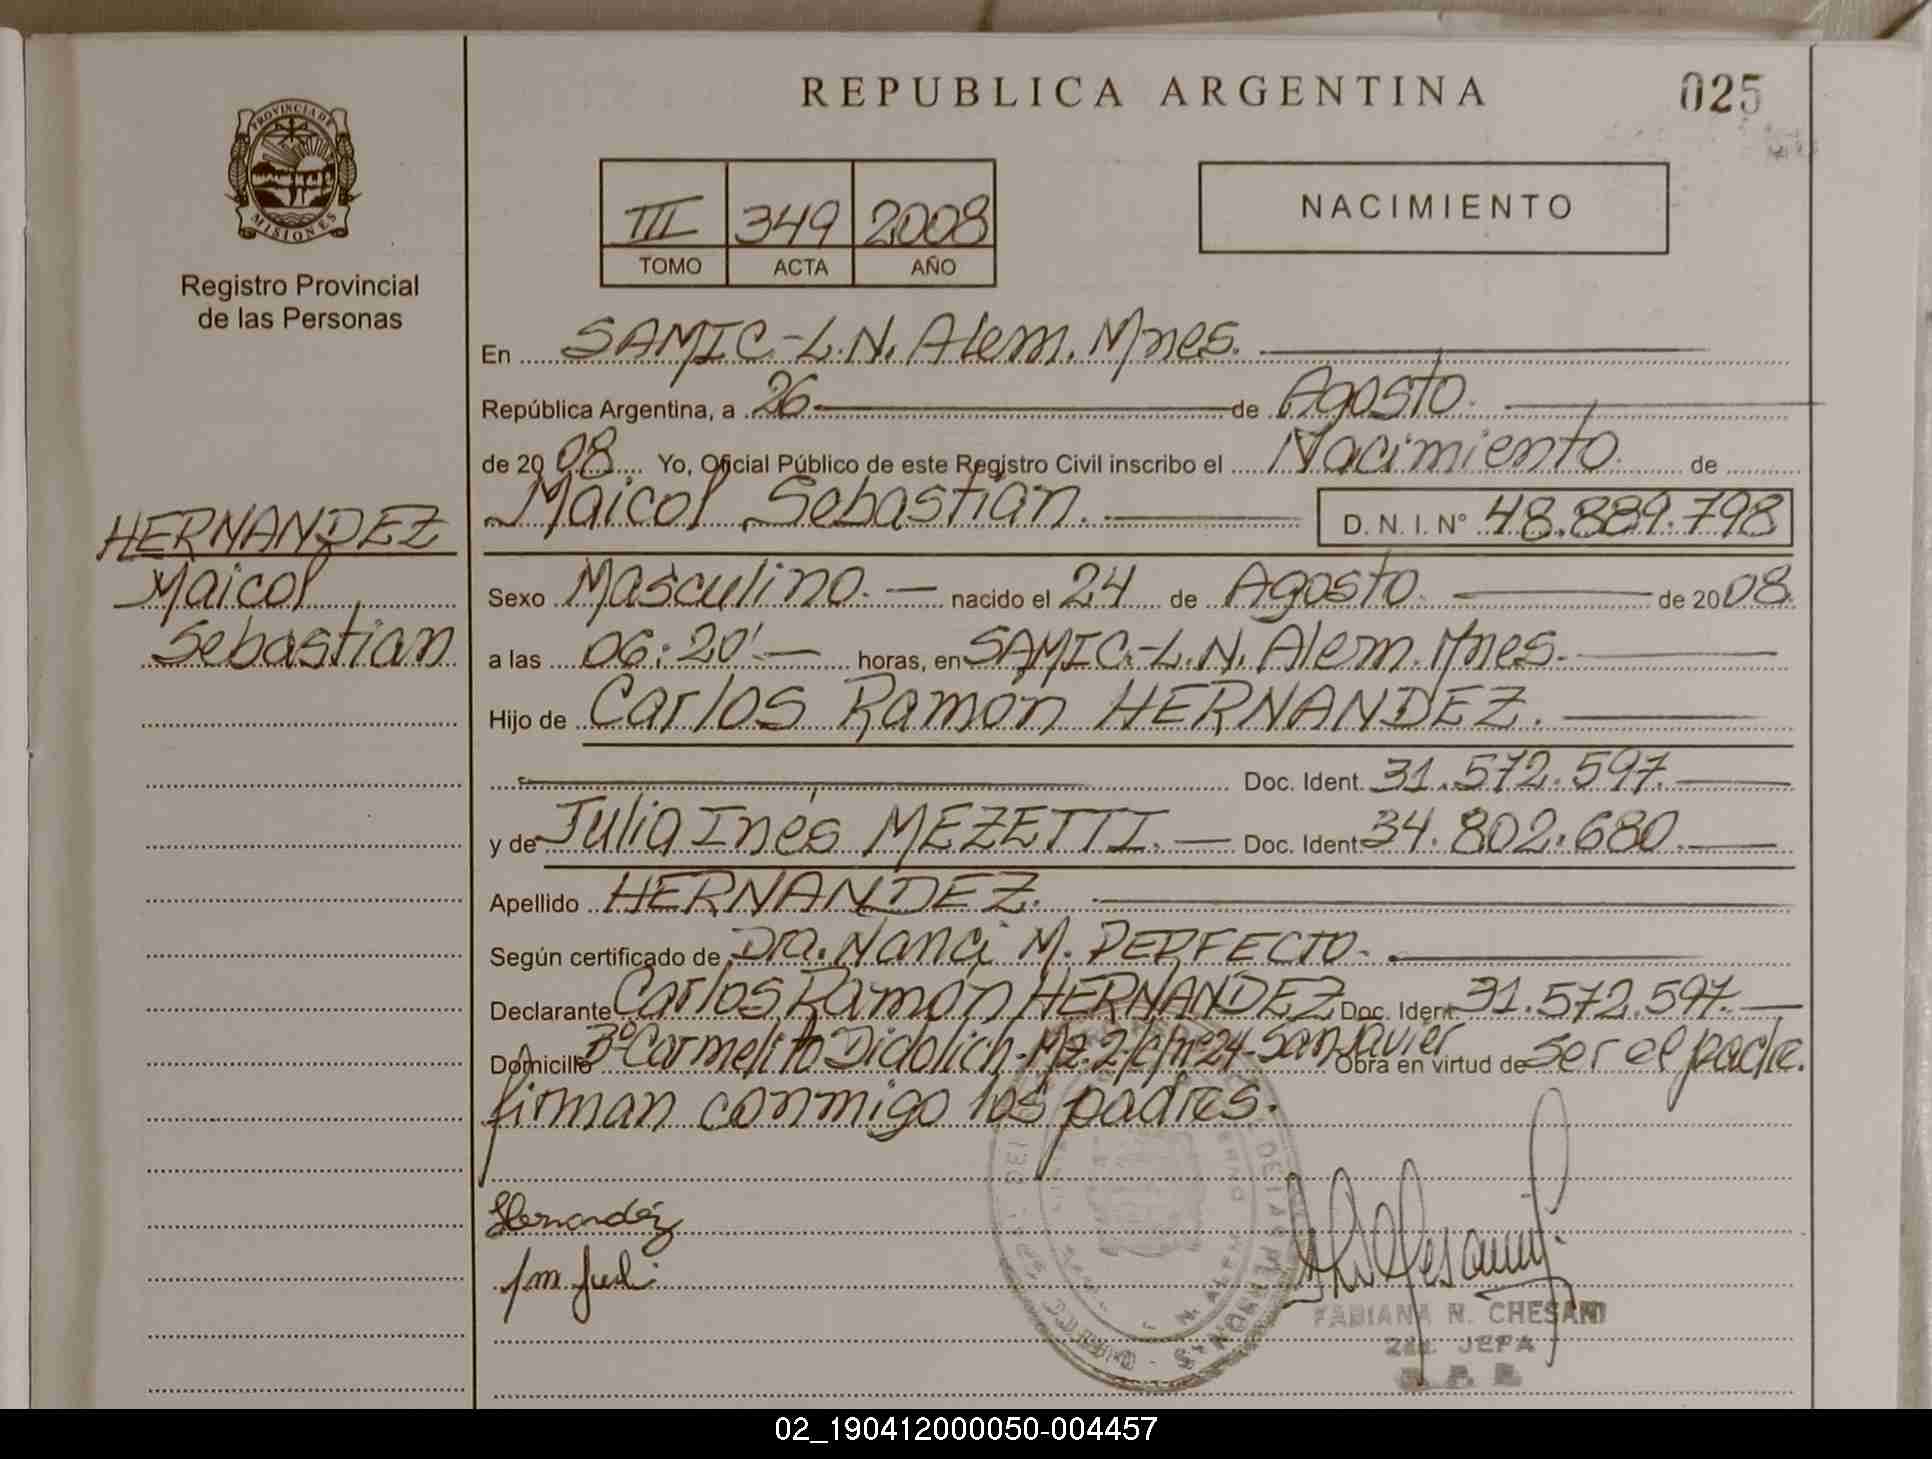 REPUBLICA ARGENTINA
025
PROVINCIA DE
MISIONES
Registro Provincial
de las Personas
III 349 2008
TOMO ACTA AÑO
NACIMIENTO
En SAMIC-L.N. Alem. Mnes.
República Argentina, a 26 de Agosto.
de 2008 Yo, Oficial Público de este Registro Civil inscribo el Nacimiento de
Maicol Sebastian. D. N. I. N° 48.889.798
HERNANDEZ
Maicol
Sebastian
Sexo Masculino. nacido el 24 de Agosto de 2008.
a las 06:20'. horas, en SAMIC.-L.N. Alem. Mnes.
Hijo de Carlos Ramón HERNANDEZ.
Doc. Ident. 31.572.597.
y de Julia Inés MEZETTI. Doc. Ident. 34.802.680.
Apellido HERNANDEZ.
Según certificado de Dra. Nanci M. PERFECTO.
Declarante Carlos Ramón HERNANDEZ Doc. Ident. 31.572.597.
Domicilio Bº Carmelito Didolich-Mz. 2/c/nº24-San Javier Obra en virtud de ser el padre.
firman conmigo los padres.
Hernandéz
FABIANA N. CHESANI
2da. JEFA
R. P. P.
02_190412000050-004457